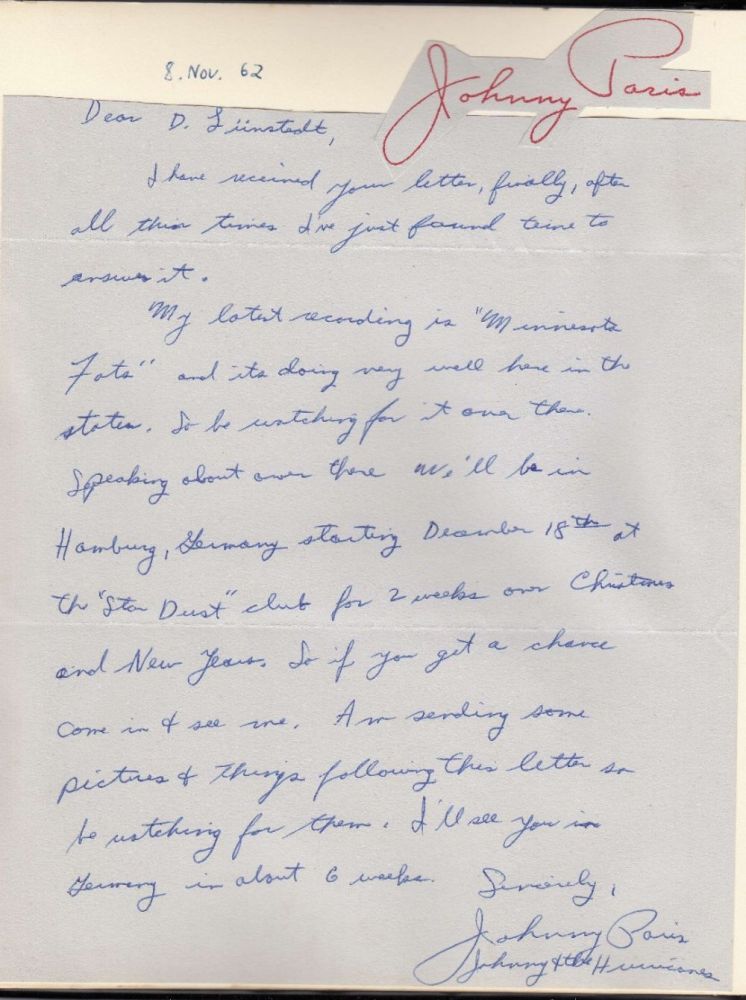 8. Nov. 62
Johnny Paris
Dear D. Lünstedt,
I have received your letter, finally, after
all this times I've just found time to
answer it.
My latest recording is "Minnesota
Fats" and its doing very well here in the
states. So be watching for it over there.
Speaking about over there we'll be in
Hamburg, Germany starting December 18th at
the "Star Dust" club for 2 weeks over Christmas
and New Years. So if you get a chance
come in & see me. Am sending some
pictures & things following this letter so
be watching for them. I'll see you in
Germany in about 6 weeks. Sincerely,
Johnny Paris
Johnny & the Hurricanes